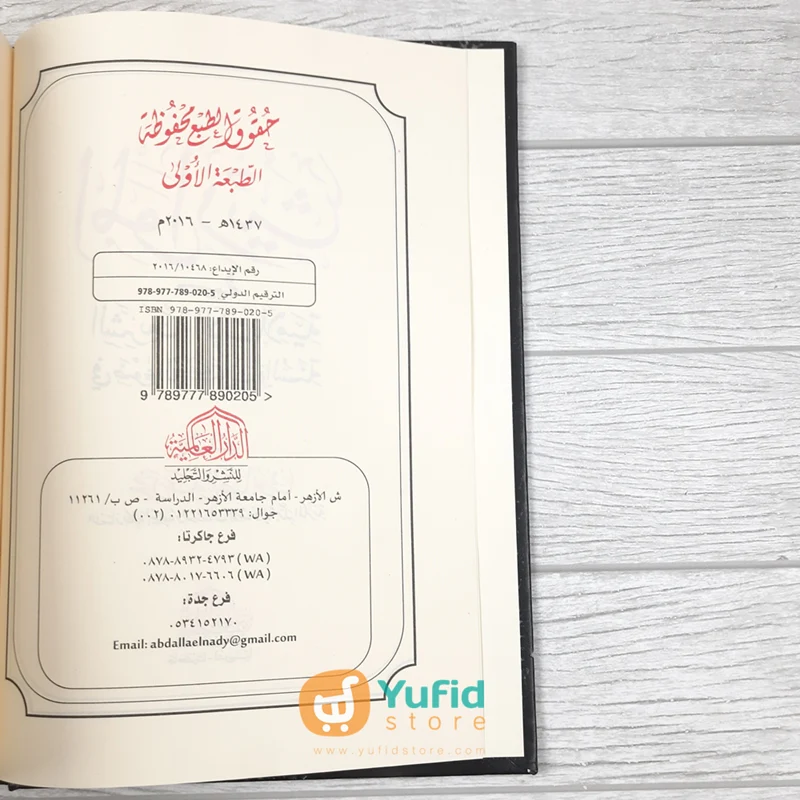 حُقُوق الطبع مَحْفُوظَة
الطَّبْعَة الأُوْلى
١٤٣٧هـ – ٢٠١٦م
رقم الإيداع: ٢٠١٦/١٠٤٦٨
الترقيم الدولي 978-977-789-020-5
ISBN 978-977-789-020-5
9 789777 890205 >
الدَّارُ العَالميَّة
للنَشْر وَالتَجليْد
ش الأزهر - أمام جامعة الأزهر - الدراسة - ص ب/ ١١٢٦١
جوال: ٠١٢٢١٦٥٣٣٣٩ (٠٠٢)
فرع جاكرتا:
٠٨٧٨-٨٩٣٢-٤٧٩٣ (WA)
٠٨٧٨-٨٠١٧-٦٦٠٦ (WA)
فرع جدة:
٠٥٣٤١٥٢١٧٠
Email: abdallaelnady@gmail.com
Yufid
store
www.yufidstore.com